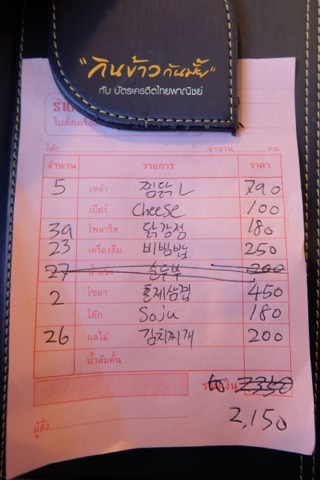 "กินข้าวกันมั้ย"
กับ บัตรเครดิตไทยพาณิชย์
โต๊ะ จำนวน คน
จำนวน รายการ ราคา
5 เหล้า 찜닭 L 790
เบียร์ cheese 100
39 โพลารีส 닭강정 180
23 เครื่องดื่ม 비빔밥 250
27 순두부 200
2 โซดา 훈제삼겹 450
โค้ก Soju 180
26 ผลไม้ 김치찌개 200
น้ำส้มคั้น
2350
2,150
ผู้สั่ง